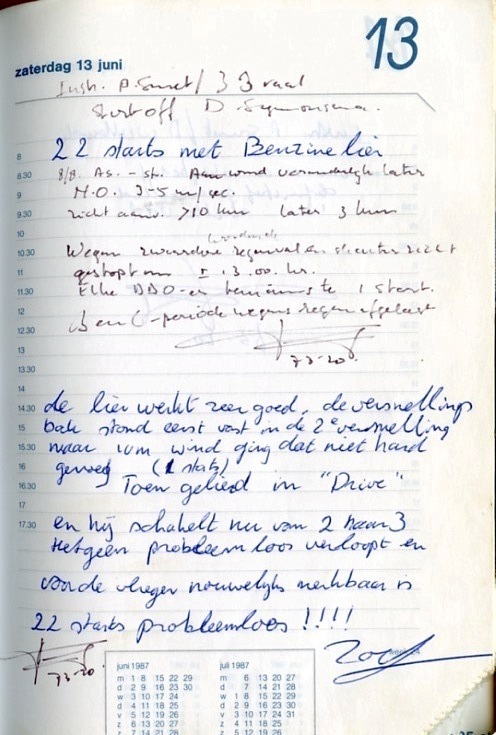 13
zaterdag 13 juni
Instr. P. Smet / 33 raal
Start off D. Symonsma.
8
22 starts met Benzine lier
8.30
8/8 As. - st. Aan wind veranderlijk later
9
N.O. 3-5 m/sec.
9.30
zicht aanv. >10 km later 3 km
10
10.30
Wegens zwaardere regenval en slechter zicht
11
gestopt om ± 13.00 hr.
11.30
Elke DBO-er tenminste 1 start.
12
B en C-periode wegens regen afgelast
12.30
13
73-20
13.30
14
14.30
de lier werkt zeer goed, de versnellings
15
bak stond eerst vast in de 2e versnelling
15.30
maar ivm wind ging dat niet hard
16
genoeg (1 start)
16.30
Toen gelierd in "Drive"
17
17.30
en hij schakelt nu van 2 naar 3
Hetgeen probleemloos verloopt en
voor de vlieger nauwelijks merkbaar is
22 starts probleemloos !!!!
73-20
juni 1987
m 1 8 15 22 29
d 2 9 16 23 30
w 3 10 17 24
d 4 11 18 25
v 5 12 19 26
z 6 13 20 27
z 7 14 21 28
juli 1987
m 6 13 20 27
d 7 14 21 28
w 1 8 15 22 29
d 2 9 16 23 30
v 3 10 17 24 31
z 4 11 18 25
z 5 12 19 26